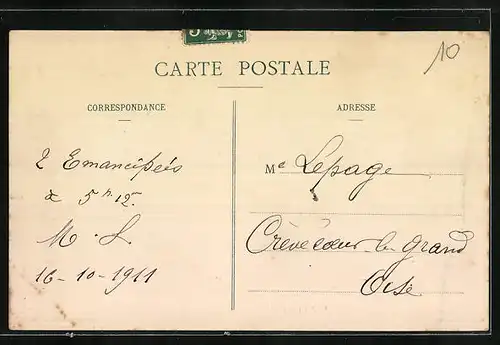 5
10
CARTE POSTALE
CORRESPONDANCE
ADRESSE
2 Emancipés
à 5h 15.
M. L.
16-10-1911
Me Lepage
Crèvecoeur-le-grand
Oise